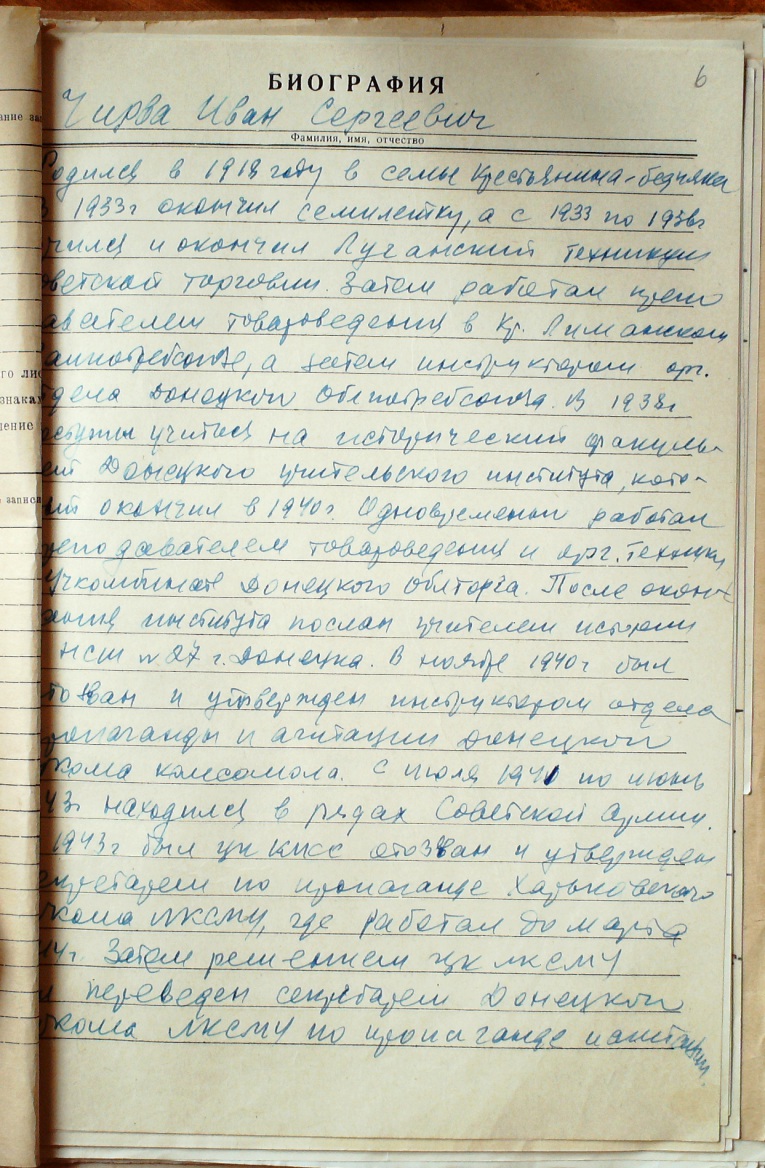 БИОГРАФИЯ
6
Чирва Иван Сергеевич
Фамилия, имя, отчество
Родился в 1918 году в семье крестьянина-бедняка
В 1933г окончил семилетку, а с 1933 по 1936г
чился и окончил Луганский техникум
оветской торговли. Затем работал препо
авателем товароведения в Кр. Лиманском
айпотребсоюзе, а затем инструктором орг.
тдела Донецкого Облпотребсоюза. В 1938г
оступил учиться на исторический факуль-
ет Донецкого учительского института, кото-
ый окончил в 1940г. Одновременно работал
реподавателем товароведения и орг. техники
Учкомбинате Донецкого Облторга. После окон-
чания института послан учителем истории
НСШ №27 г. Донецка. В ноябре 1940г был
тозван и утвержден инструктором отдела
ропаганды и агитации Донецкого
бкома комсомола. С июля 1941 по июнь
43г находился в рядах Советской Армии.
1943г был ЦК КПСС отозван и утвержден
екретарем по пропаганде Харьковского
бкома ЛКСМУ, где работал до марта
44г. Затем решением ЦК ЛКСМУ
л переведен секретарем Донецкого
бкома ЛКСМУ по пропаганде и агитации.
ание за
го ли
знаках
ение
записи